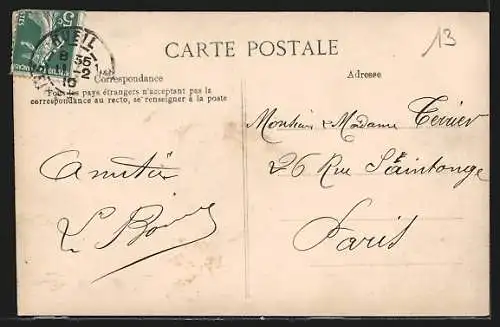 5c
8 35
11-2
10
CARTE POSTALE
13
Correspondance
Tous les pays étrangers n'acceptant pas la
correspondance au recto, se renseigner à la poste
Adresse
Amitié
Monsieur & Madame
26 Rue Saintonge
Paris